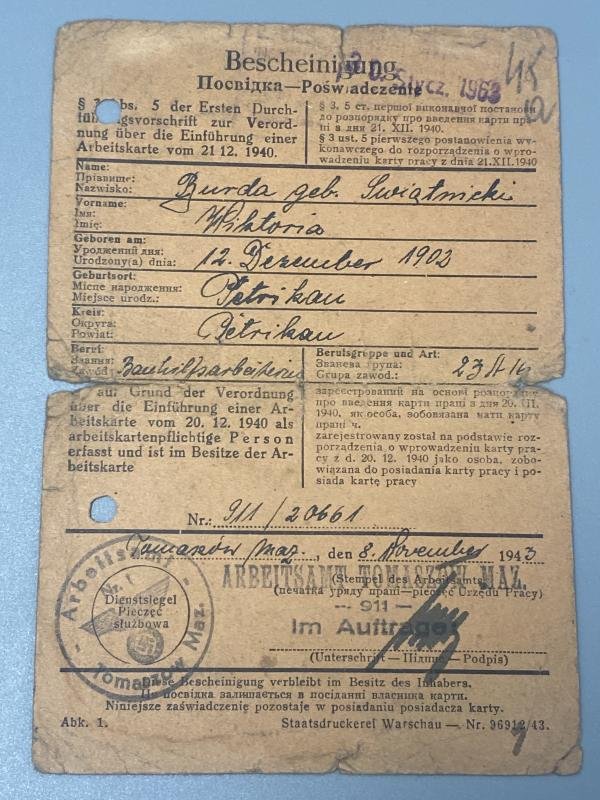 Bescheinigung
20. Stycz. 1963
48
a
Посвідка—Poświadczenie
§ 3 Abs. 5 der Ersten Durch-
führungsvorschrift zur Verord-
nung über die Einführung einer
Arbeitskarte vom 21 12. 1940.
§ 3, 5 ст. першої виконавчої постанови
до розпорядку про введення карти пра-
ці з дня 21. XII. 1940.
§ 3 ust. 5 pierwszego postanowienia wy-
konawczego do rozporządzenia o wpro-
wadzeniu karty pracy z dnia 21.XII.1940
Name:
Прізвище:
Nazwisko:
Burda geb. Swiątnicki
Vorname:
Імя:
Imię:
Wiktoria
Geboren am:
Уроджений дня:
Urodzony(a) dnia:
12. Dezember 1902
Geburtsort:
Місце народження:
Miejsce urodz.:
Petrikau
Kreis:
Округа:
Powiat:
Petrikau
Beruf:
Звання:
Zawód:
Bauhilfsarbeiterin
Berufsgruppe und Art:
Званева група:
Grupa zawod.:
23 A
ist auf Grund der Verordnung
über die Einführung einer Ar-
beitskarte vom 20. 12. 1940 als
arbeitskartenpflichtige Person
erfasst und ist im Besitze der Ar-
beitskarte
зареєстрований на основі розпорядку
про введення карти праці з дня 20. XII.
1940, як особа, зобовязана мати карту
праці ч.
zarejestrowany został na podstawie roz-
porządzenia o wprowadzeniu karty pra-
cy z d. 20. 12. 1940 jako osoba, zobo-
wiązana do posiadania karty pracy i po-
siada kartę pracy
Nr.: 911/20661
Tomaszów Maz., den 8. November 1943
ARBEITSAMT TOMASZOW MAZ.
(Stempel des Arbeitsamts
(печатка уряду праці—pieczęć Urzędu Pracy)
— 911 —
Im Auftrage:
(Unterschrift — Підпис — Podpis)
Arbeitsamt
Nr. 1
Dienstsiegel
Pieczęć
służbowa
Tomaszow Maz.
Diese Bescheinigung verbleibt im Besitz des Inhabers.
Ця посвідка залишається в посіданні власника карти.
Niniejsze zaświadczenie pozostaje w posiadaniu posiadacza karty.
Abk. 1.
Staatsdruckerei Warschau — Nr. 96912/43.